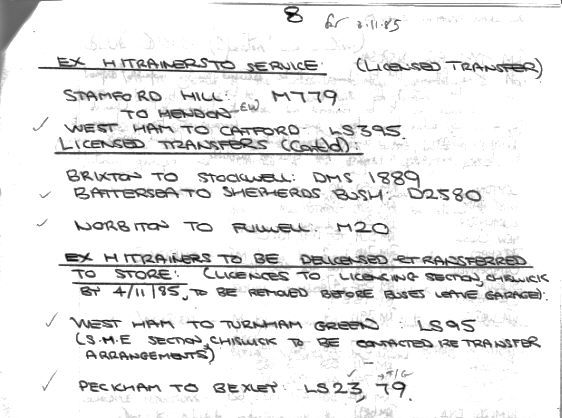 8 for 2.11.85
EX HITRAINERS TO SERVICE: (LICENSED TRANSFER)
STAMFORD HILL: M779
TO HENDON EW
✓ WEST HAM TO CATFORD: LS395.
LICENSED TRANSFERS (Cont'd):
BRIXTON TO STOCKWELL: DMS 1889
✓ BATTERSEA TO SHEPHERDS BUSH: D2580
✓ NORBITON TO FULWELL: M20
EX HITRAINERS TO BE DELICENSED & TRANSFERRED
TO STORE: (LICENCES TO LICENSING SECTION, CHISWICK
BY 4/11/85, TO BE REMOVED BEFORE BUSES LEAVE GARAGE):
✓ WEST HAM TO TURNHAM GREEN: LS95
(S.M.E SECTION, CHISWICK TO BE CONTACTED RE TRANSFER
ARRANGEMENTS)
→T/G
✓ PECKHAM TO BEXLEY: LS23, 79.